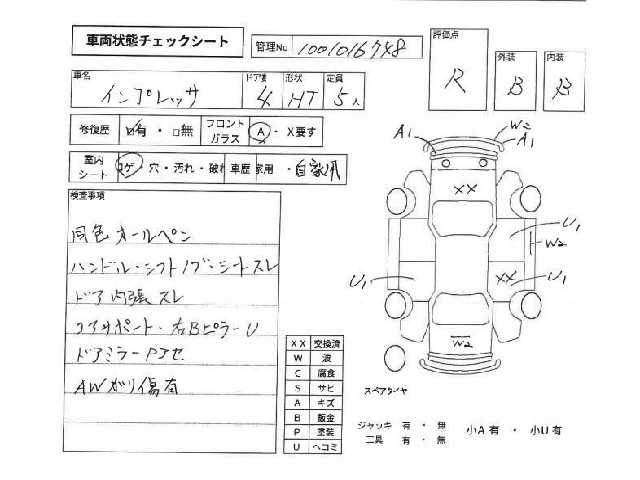 車両状態チェックシート
管理No 1001016748
評価点 R
外装 B
内装 B
車名 インプレッサ
ドア数 4
形状 HT
定員 5人
修復歴 有・無
フロントガラス A・X要す
室内シート ・穴・汚れ・破れ
車歴 家用・自家用
検査事項
同色オールペン
ハンドル・シフトノブ・シートスレ
ドア内張スレ
コアサポート・右Bピラー U
ドアミラー
AWガリ傷有
A1 W2 A1
XX
U1
W2
U1 XX U1
W2
スペアタイヤ
XX 交換済
W 波
C 腐食
S サビ
A キズ
B 鈑金
P 塗装
U ヘコミ
ジャッキ 有・無
工具 有・無
小A有・小U有